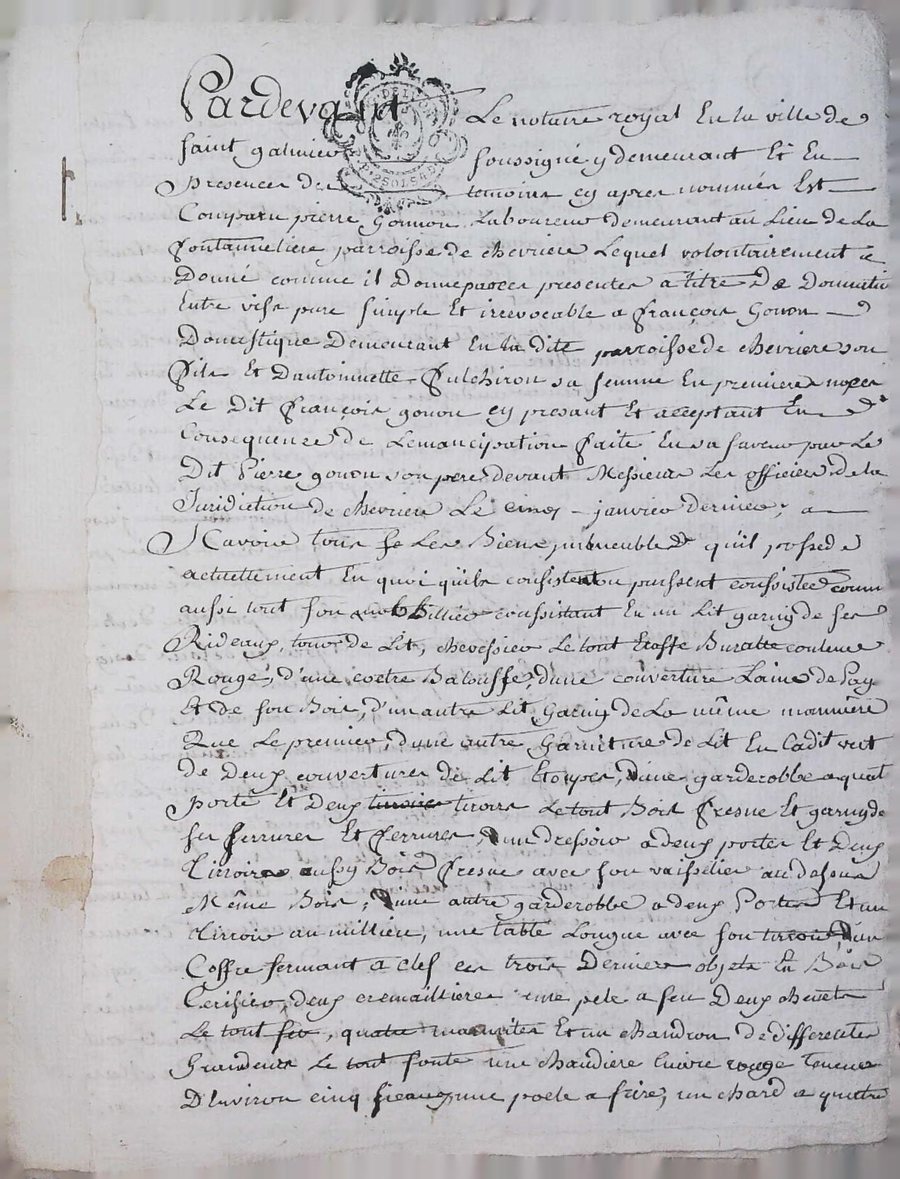 Pardevant Le notaire royal En la ville de
saint galmier soussigné y demeurant Et En
presences des temoins cy apres nommés Est
Comparu pierre Gonnon Laboureur demeurant au Lieu de La
fontanneliere parroisse de chevriere Lequel volontairement a
Donné comme il Donne par ces presentes a titre De Donnation
Entre vifs pure simple Et irrevocable a françois Gonon
Domestique Demeurant En la dite parroisse de chevriere son
fils Et Dantoinnette fulchiron sa femme En premieres noces
Le Dit françois gonon cy presant Et acceptant En
Consequence de Lemancipation faite En sa faveur par Le
Dit Pierre gonon son pere devant Messieurs Les officiers de la
Juridiction de chevriere Le cinq janvier dernier, a
Scavoir tous se Les Biens immeubles qu'il possede
actuellement En quoi qu'ils consistent ou puissent consister comm
aussi tout son mobbillier consistant En un Lit garny de ses
Rideaux, tour de Lit, chevessier Le tout Etoffe Buratte couleur
Rouge, d'une coetre Balouffe, d'une couverture Laine de Pay
Et de son Bois, d'un autre Lit Garny de La même manniere
Que Le premier, d'une autre Garniture de Lit En Cadit vert
de Deux couvertures de Lit Etoupes, d'une garderobbe a quatre
porte Et Deux tirroirs tiroirs Le tout Bois fresne Et garny de
ses serrures Et ferrures, d'un dressoir a deux portes Et Deux
Tirroirs aussy Bois fresne avec son vaisselier au dessus
Même Bois, d'une autre garderobbe a deux Portes Et un
Tirroir au millieu, une table Longue avec son tirroir, d'un
Coffre fermant a clef ces trois Derniers objets En Bois
Cerisier, deux cremaillieres une pele a feu Deux chenets
Le tout fer, quatre marmites Et un chaudron De differentes
Grandeurs Le tout fonte une chaudiere Cuivre rouge teneur
D'Environ cinq seaux, une poele a frire, un chard a quatre